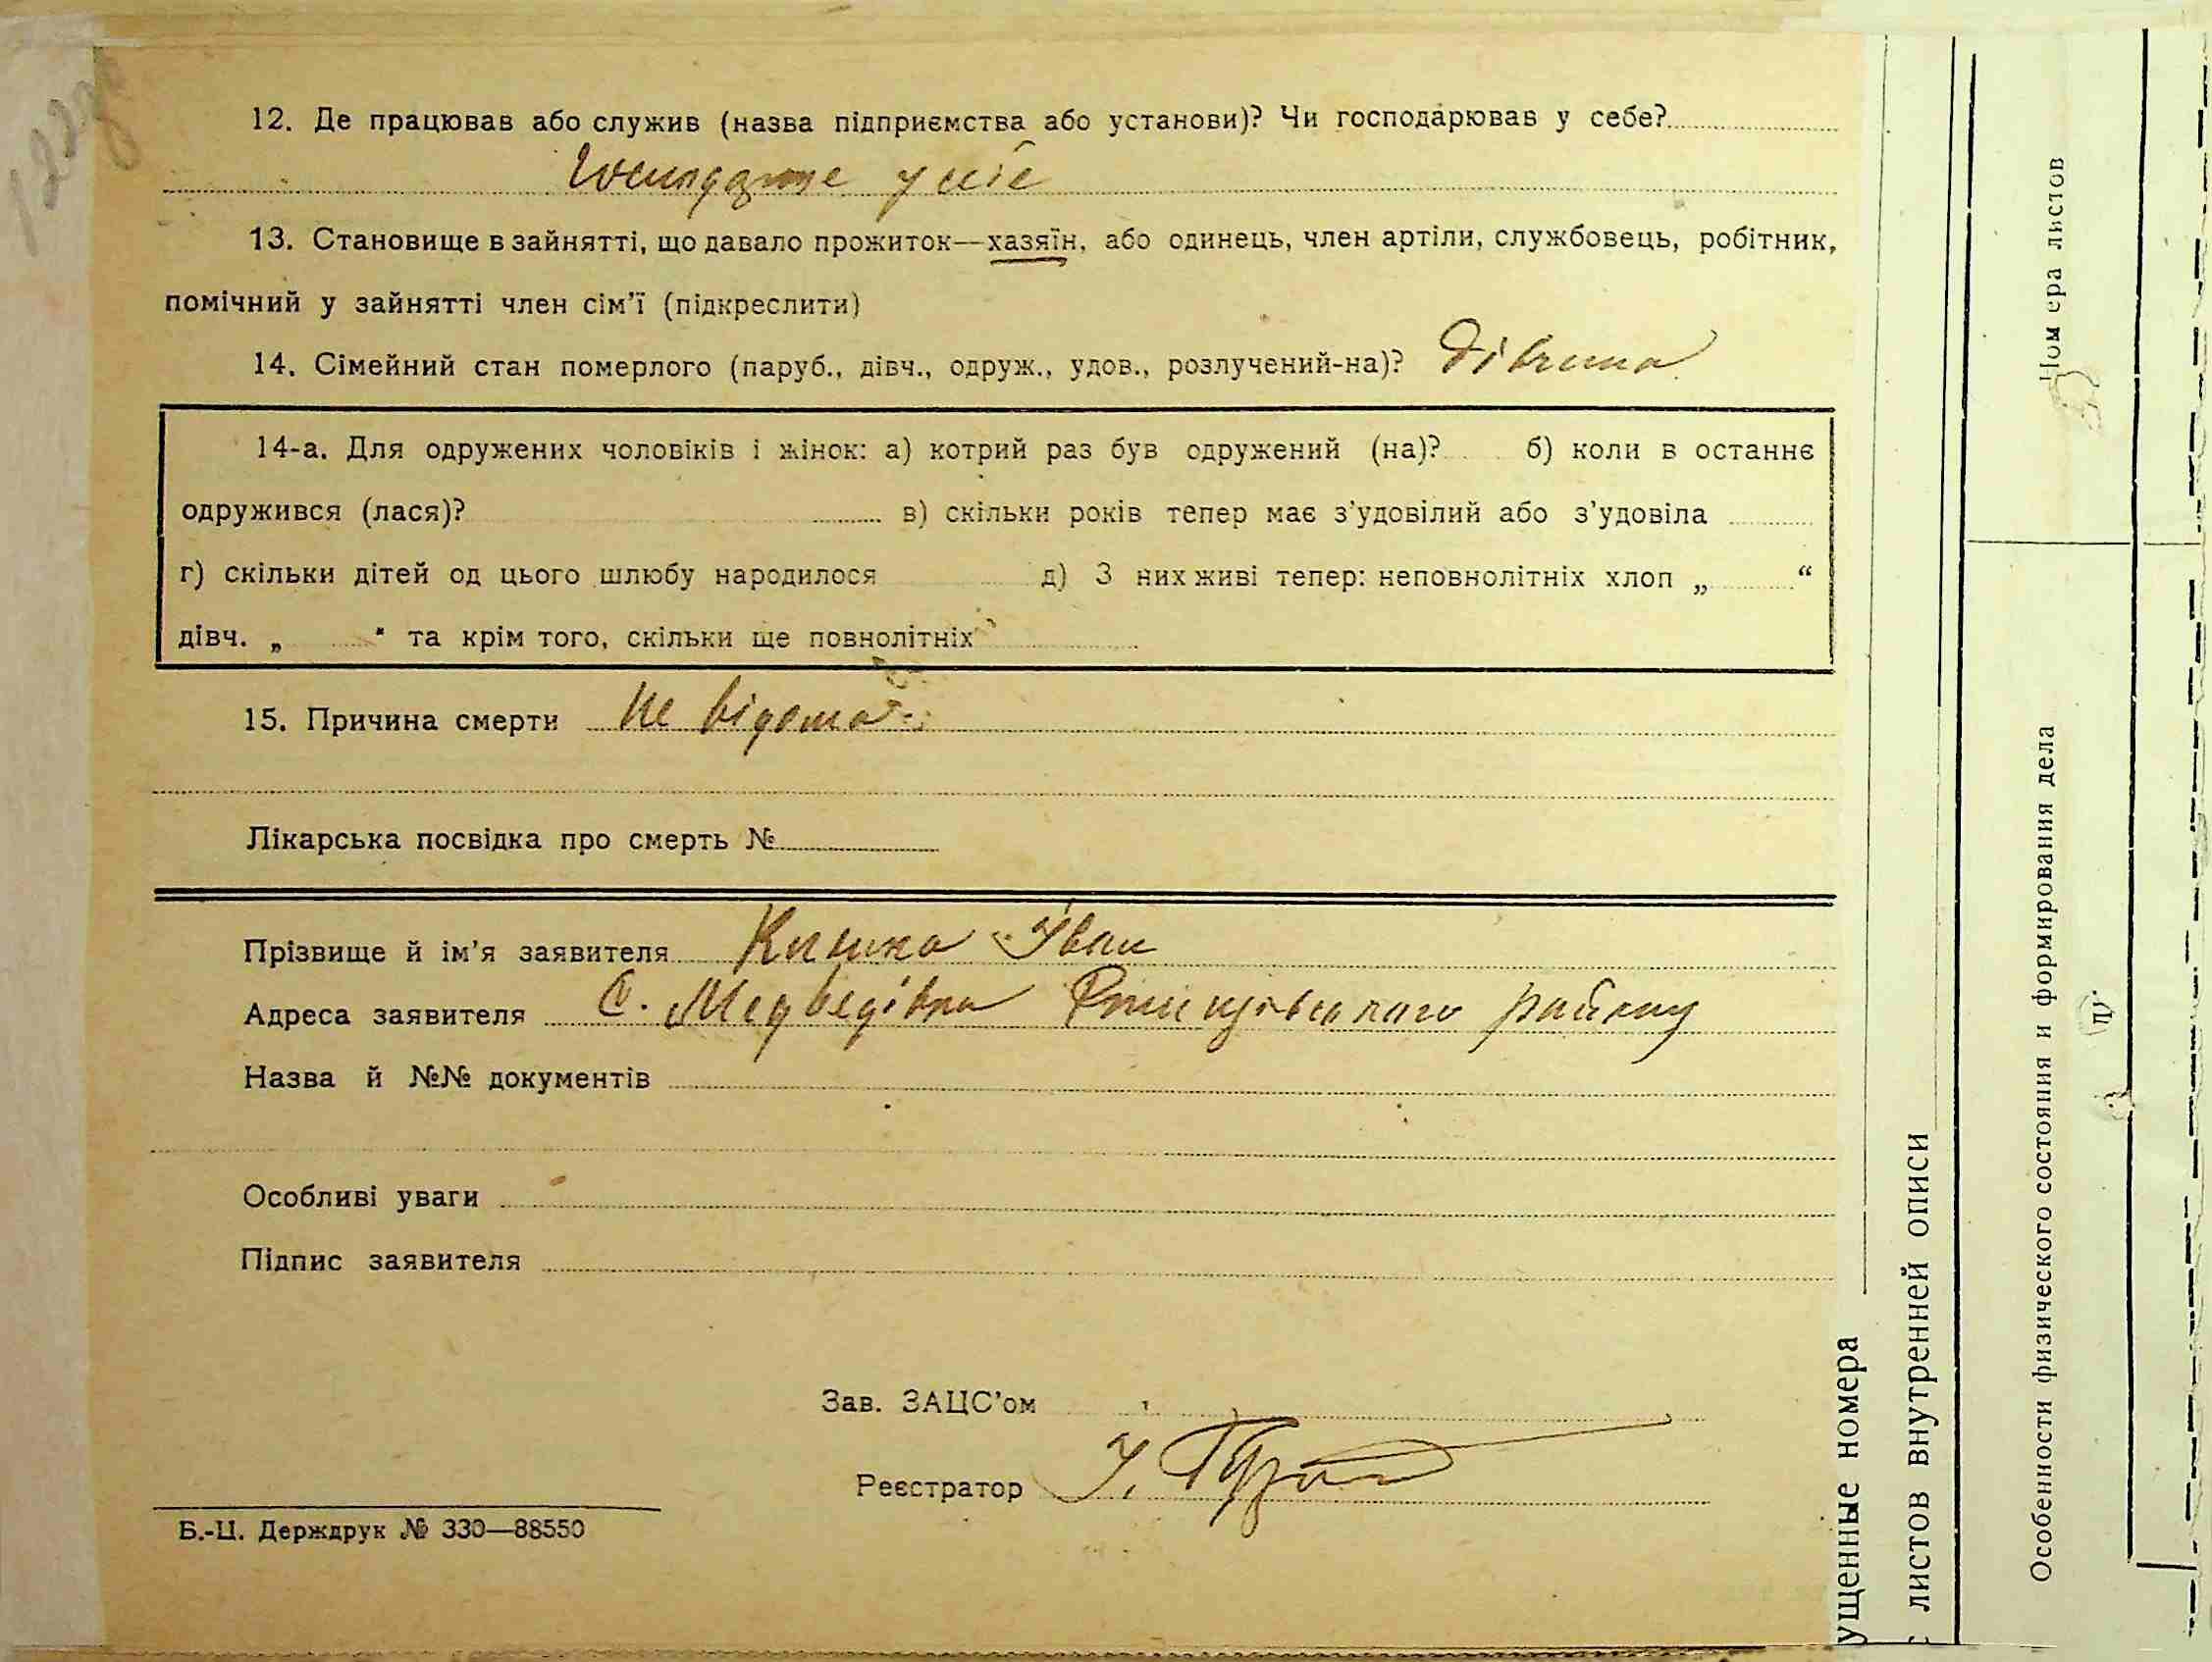 12. Де працював або служив (назва підприємства або установи)? Чи господарював у себе?
13. Становище в зайнятті, що давало прожиток—хазяїн, або одинець, член артіли, службовець, робітник,
помічний у зайнятті член сім'ї (підкреслити)
14. Сімейний стан померлого (паруб., дівч., одруж., удов., розлучений-на)? дівчина
14-а. Для одружених чоловіків і жінок: а) котрий раз був одружений (на)? б) коли в останнє
одружився (лася)? в) скільки років тепер має з'удовілий або з'удовіла
г) скільки дітей од цього шлюбу народилося д) З них живі тепер: неповнолітніх хлоп „ “
дівч. „ “ та крім того, скільки ще повнолітніх
15. Причина смерти не відома
Лікарська посвідка про смерть №
Прізвище й ім'я заявителя Іван
Адреса заявителя С. Медведівка району
Назва й №№ документів
Особливі уваги
Підпис заявителя
Зав. ЗАЦС'ом
Реєстратор
Б.-Ц. Держдрук № 330—88550
ущенные номера
листов внутренней описи
Номера листов
Особенности физического состояния и формирования дела